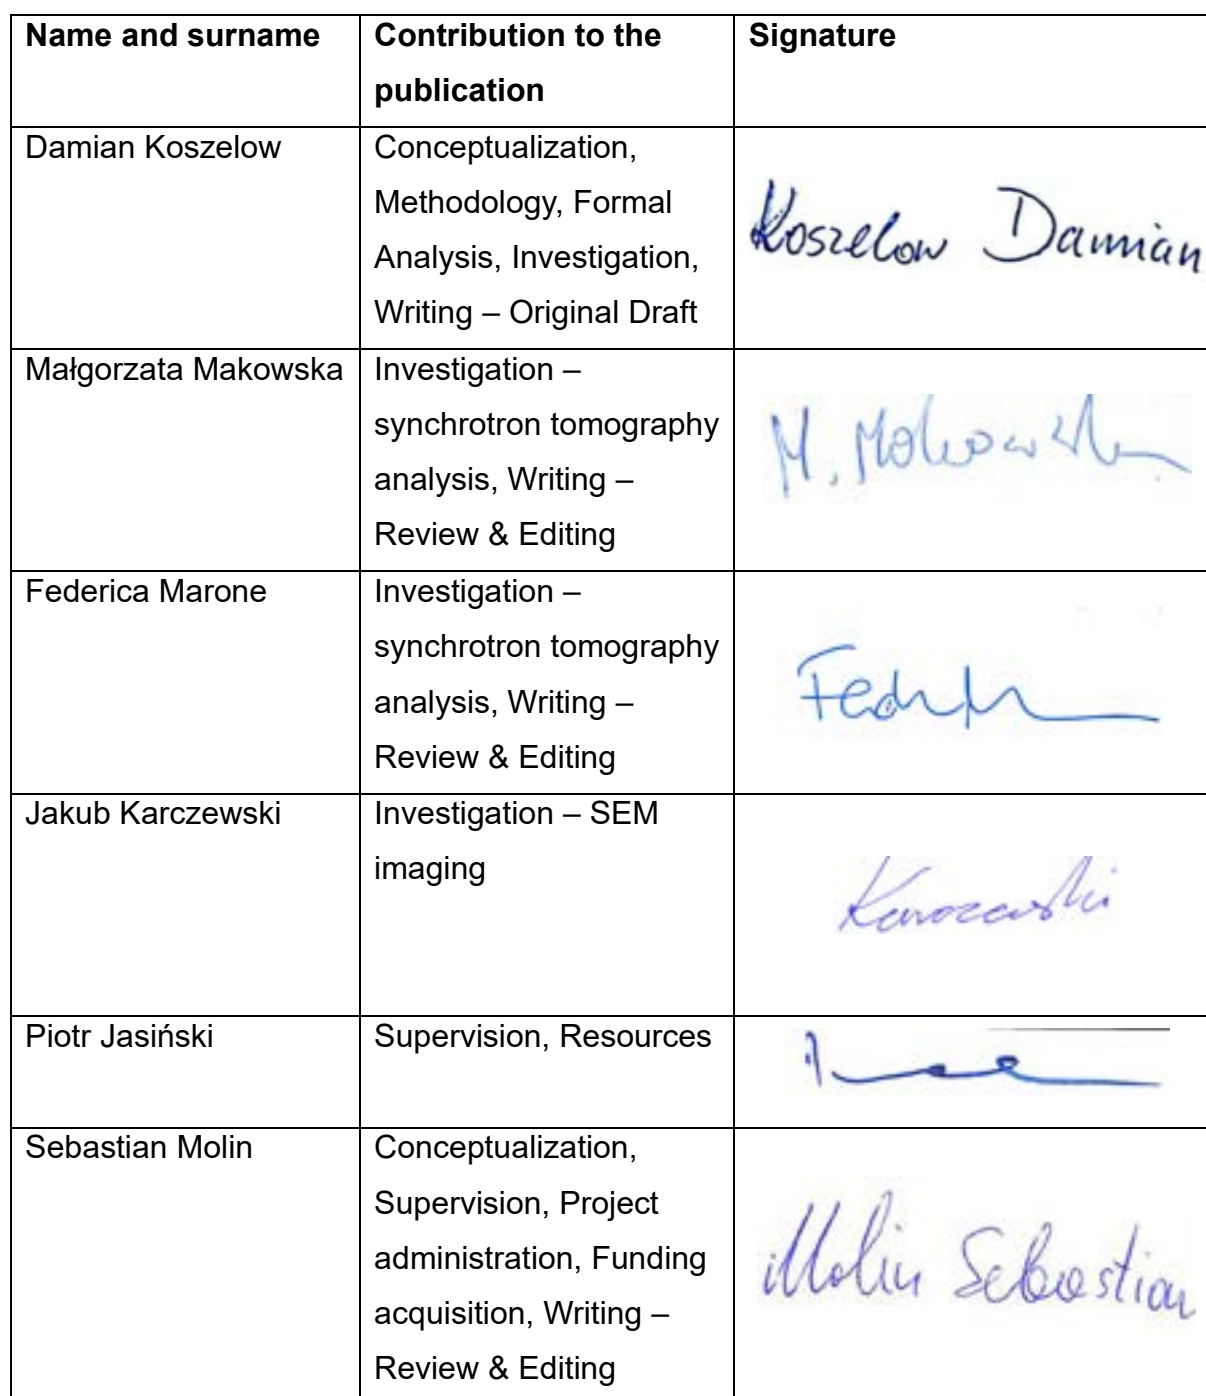 Name and surname
Contribution to the
publication
Signature
Damian Koszelow
Conceptualization,
Methodology, Formal
Analysis, Investigation,
Writing – Original Draft
Koszelow Damian
Małgorzata Makowska
Investigation –
synchrotron tomography
analysis, Writing –
Review & Editing
M. Makowska
Federica Marone
Investigation –
synchrotron tomography
analysis, Writing –
Review & Editing
Jakub Karczewski
Investigation – SEM
imaging
Karczewski
Piotr Jasiński
Supervision, Resources
Sebastian Molin
Conceptualization,
Supervision, Project
administration, Funding
acquisition, Writing –
Review & Editing
Molin Sebastian